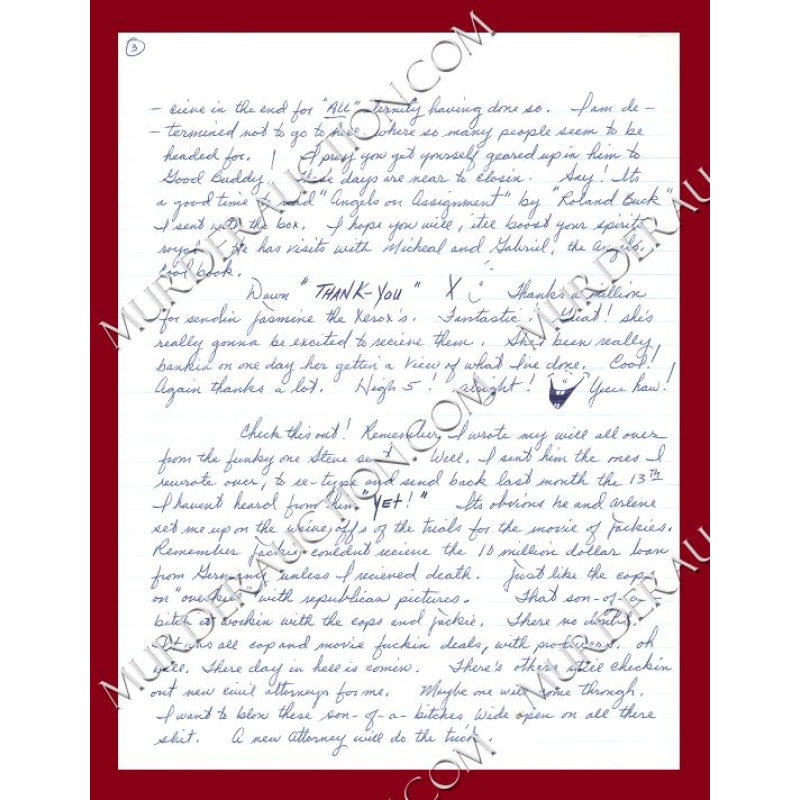 3
- cieve in the end for "ALL" ternity having done so. I am de -
- termined not to go to where so many people seem to be
headed for. ! I pray you get yourself geared up in him to
Good Buddy. These days are near to closin. Say! Its
a good time read "Angels on Assignment" by "Roland Buck"
I sent with the box. I hope you will, itel boost your spirit
He has visits with Micheal and Gabriel, the Angels.
Cool book.
Dawn "THANK-YOU" X Thanks a million
for sendin Jasmine the Xerox's. Fantastic. Great! she's
really gonna be excited to recieve them. She's been really
bankin on one day her gettin a view of what I've done. Cool!
Again thanks a lot. High 5! alright! Yeee haw!
Check this out! Remember, I wrote my will all over
from the funky one Steve sent. Well. I sent him the ones I
rewrote over, to re-type and send back last month the 13TH
I havent heard from him "YET!" Its obvious he and arlene
set me up on the waive offs of the trials for the movie of jackies.
Remember Jackie couldnt recieve the 10 million dollar loan
from Germany, unless I recieved death. Just like the cops
on "overkill" with republican pictures. That son-of-a-
bitch is workin with the cops and jackie. There no doubt.
It was all cop and movie fuckin deals, with producers. oh
well. There day in hell is comin. There's others still checkin
out new civil attorneys for me. Maybe one will come through.
I want to blow these son-of-a-bitches wide open on all there
shit. A new Attorney will do the trick.
MURDERAUCTION.COM
MURDERAUCTION.COM
MURDERAUCTION.COM
MURDERAU
MURDERAU